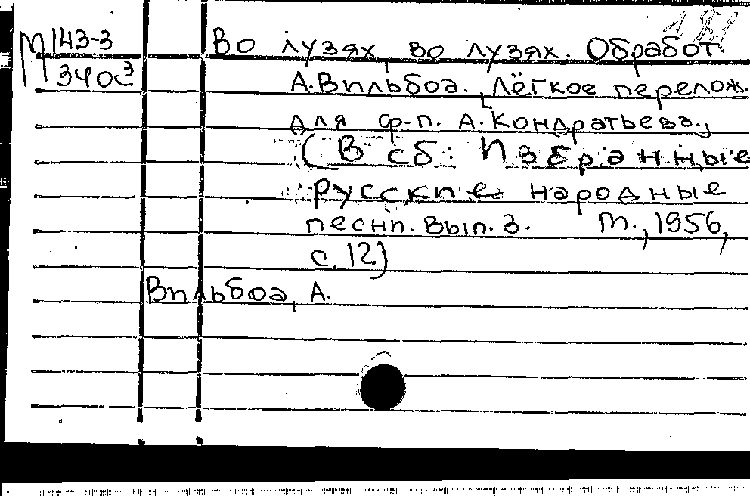 М 143-3
340с³
Во лузях, во лузях. Обработ.
А. Вильбоа., Лёгкое перелож.
для ф-п. А. Кондратьева.,
(В сб: Избранные
русские народные
песни. Вып. 3. М., 1956,
с. 12)
Вильбоа, А.